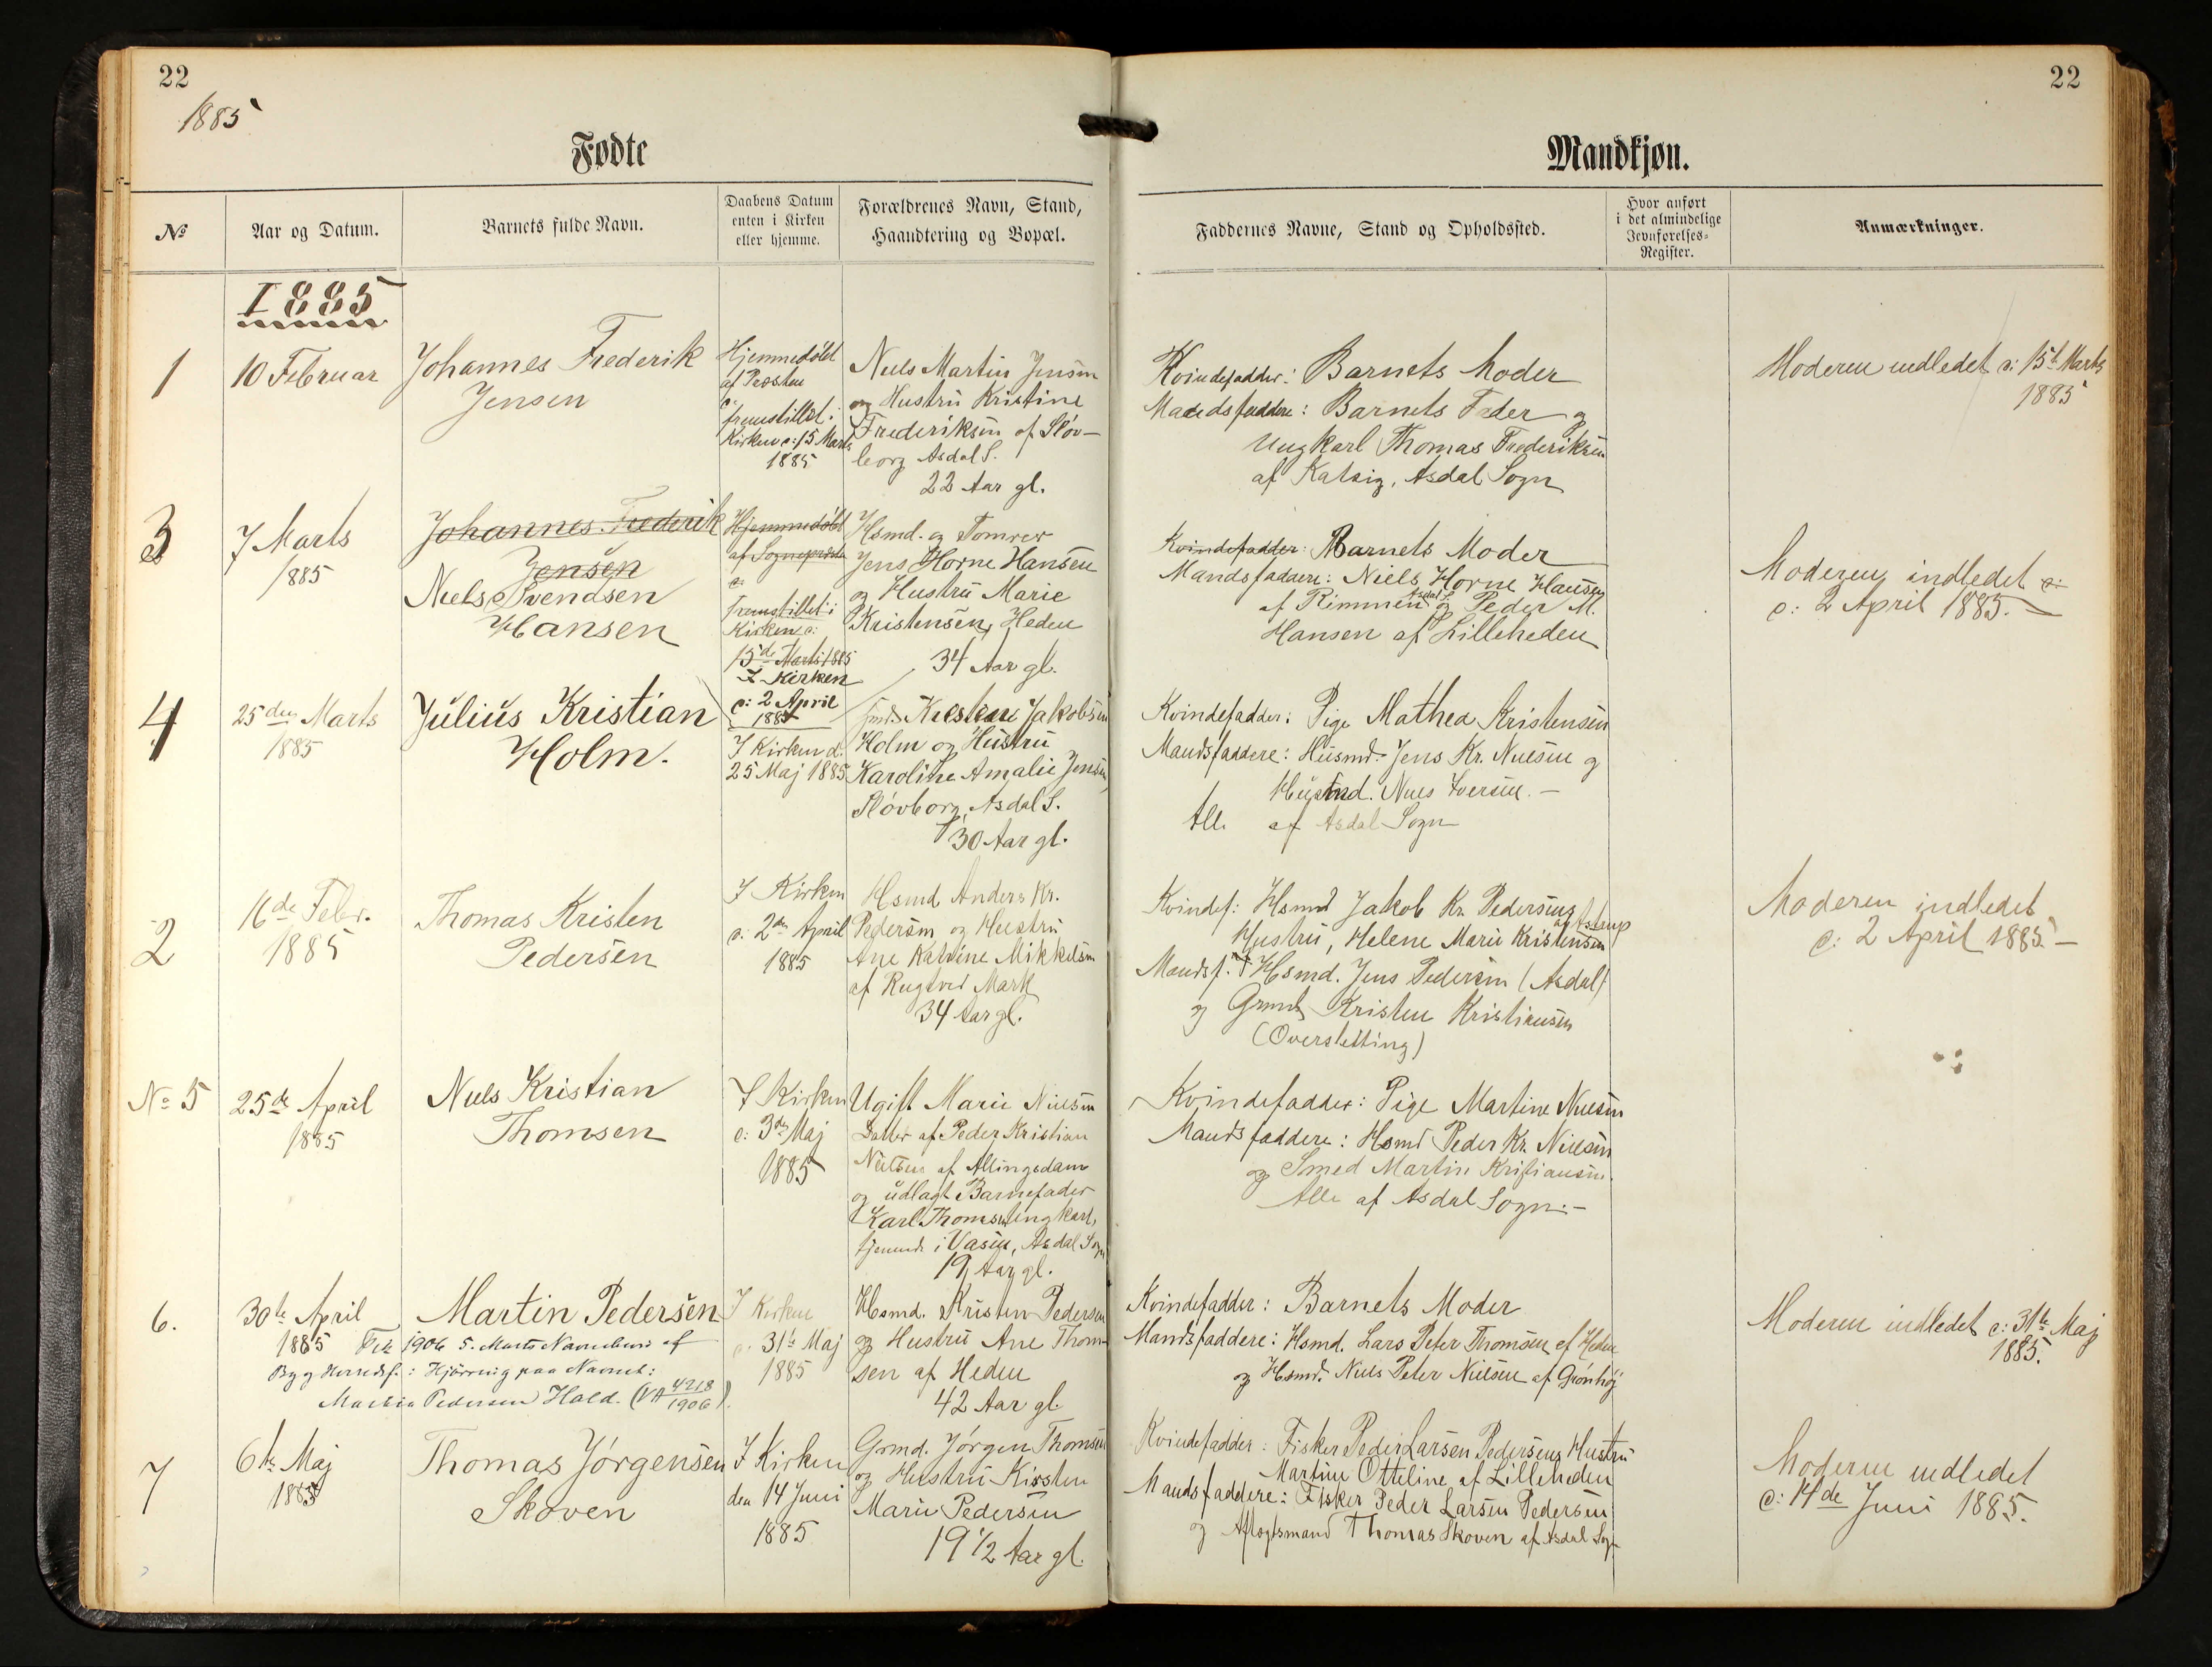 22
1885
Fødte
№
Aar og Datum.
Barnets fulde Navn.
Daabens Datum
enten i Kirken
eller hjemme.
Forældrenes Navn, Stand,
Haandtering og Bopæl.
1885
1
10 Februar
Johannes Frederik
Jensen
Hjemmedöbt
af Præsten
fremstillet i
Kirken d: 15 Marts
1885
Niels Martin Jensen
og Hustru Kristine
Frederiksen af Slöv-
borg Asdal S.
22 Aar gl.
3
7 Marts
1885
Johannes Frederik
Jensen
Niels Svendsen
Hansen
Hjemmedöbt
af Sognepræsten
fremstillet i
Kirken d:
15de Marts 1885
I Kirken
d: 2 April
1885
Hsmd. og Tömrer
Jens Horne Hansen
og Hustru Marie
Kristensen, Heden
34 Aar gl.
4
25den Marts
1885
Julius Kristian
Holm.
I Kirken d:
25 Maj 1885
Jakobsen
Holm og Hustru
Karoline Amalie Jensen,
Slövborg, Asdal S.
30 Aar gl.
2
16de Febr.
1885
Thomas Kristen
Pedersen
I Kirken
d: 2den April
1885
Hsmd Anders Kr.
Pedersen og Hustru
Ane Katrine Mikkelsen
af Rugtved Mark
34 Aar gl.
№ 5
25de April
1885
Niels Kristian
Thomsen
I Kirken
d: 3die Maj
1885
Ugift Marie Nielsen
Datter af Peder Kristian
Nielsen af Allingsdam
og udlagt Barnefader
Karl Thomsen Ungkarl,
tjenende i Vasen, Asdal Sogn
19 Aar gl.
6.
30te April
1885
Martin Pedersen
Fik 1906 5. Marts Navnebevis af
By og Herredsf.: Hjörring paa Navnet:
Martin Pedersen Hald. (VA 4218/1906).
I Kirken
d. 31te Maj
1885
Hsmd. Kristen Pedersen
og Hustru Ane Thom-
sen af Heden
42 Aar gl.
7
6te Maj
1885
Thomas Jörgensen
Skoven
I Kirken
den 14 Juni
1885
Grmd. Jörgen Thomsen
og Hustru Kirsten
Marie Pedersen
19 1/2 Aar gl.
22
Mandkjøn.
Faddernes Navne, Stand og Opholdssted.
Hvor anført
i det almindelige
Jevnførelses-
Register.
Anmærkninger.
Kvindefadder: Barnets Moder
Mandsfaddere: Barnets Fader og
Ungkarl Thomas Frederiksen
af Katsig, Asdal Sogn
Moderen indledet d: 15de Marts
1885
Kvindefadder: Barnets Moder
Mandsfaddere: Niels Horne Hansen
af Rimmen Asdal S. og Peder M.
Hansen af Lilleheden
Moderen indledet d:
d: 2 April 1885.
Kvindefadder: Pige Mathea Kristensen
Mandsfaddere: Husmd. Jens Kr. Nielsen og
Husmd. Niels Iversen.
Alle af Asdal Sogn
Kvindef: Hsmd Jakob Kr. Pedersens af Astrup
Hustru, Helene Marie Kristensen
Mandsf. Hsmd. Jens Pedersen (Asdal)
og Grmd Kristen Kristiansen
(Oversletting)
Moderen indledet
d: 2 April 1885
Kvindefadder: Pige Martine Nielsen
Mandsfaddere: Hsmd Peder Kr. Nielsen
og Smed Martin Kristiansen.
Alle af Asdal Sogn.
Kvindefadder: Barnets Moder
Mandsfaddere: Hsmd. Lars Peter Thomsen af Heden
og Hsmd. Niels Peter Nielsen af Grönhöj
Moderen indledet d: 31te Maj
1885.
Kvindefadder: Fisker Peder Larsen Pedersens Hustru
Martine Otteline af Lilleheden
Mandsfaddere: Fisker Peder Larsen Pedersen
og Aftægtsmand Thomas Skoven af Asdal Sogn
Moderen indledet
d: 14de Juni 1885.